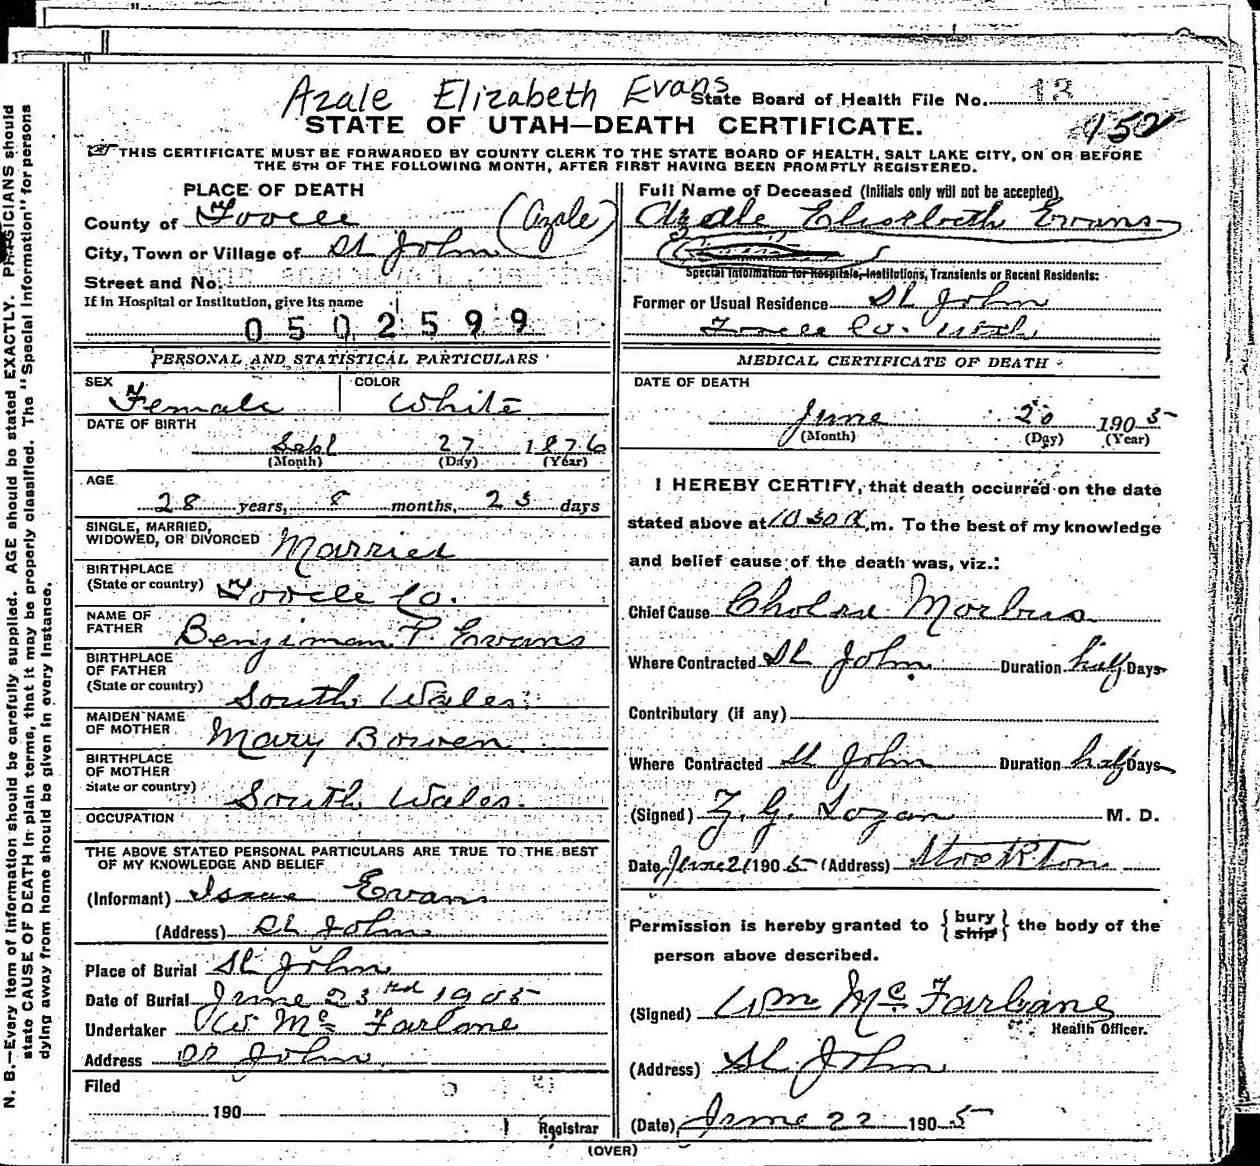 Azale Elizabeth Evans
State Board of Health File No. 13
STATE OF UTAH—DEATH CERTIFICATE.
152
THIS CERTIFICATE MUST BE FORWARDED BY COUNTY CLERK TO THE STATE BOARD OF HEALTH, SALT LAKE CITY, ON OR BEFORE
THE 5TH OF THE FOLLOWING MONTH, AFTER FIRST HAVING BEEN PROMPTLY REGISTERED.
PLACE OF DEATH
County of Tooele (Azale)
City, Town or Village of St John
Street and No.
If in Hospital or Institution, give its name
0502599
Full Name of Deceased (Initials only will not be accepted)
Azale Elisebeth Evans
Special Information for Hospitals, Institutions, Transients or Recent Residents:
Former or Usual Residence St John
Tooele Co. Utah
PERSONAL AND STATISTICAL PARTICULARS
SEX Female COLOR White
DATE OF BIRTH
Sept 27 1876
(Month) (Day) (Year)
AGE
28 years, 8 months, 23 days
SINGLE, MARRIED,
WIDOWED, OR DIVORCED Married
BIRTHPLACE
(State or country) Tooele Co.
NAME OF
FATHER Benjiman P. Evans
BIRTHPLACE
OF FATHER
(State or country) South Wales
MAIDEN NAME
OF MOTHER Mary Bowen
BIRTHPLACE
OF MOTHER
State or country) South Wales.
OCCUPATION
THE ABOVE STATED PERSONAL PARTICULARS ARE TRUE TO THE BEST
OF MY KNOWLEDGE AND BELIEF
(Informant) Isaac Evans
(Address) St John
Place of Burial St John
Date of Burial June 23rd 1905
Undertaker W Mc Farlane
Address St John
Filed
190
Registrar
MEDICAL CERTIFICATE OF DEATH
DATE OF DEATH
June 20 1905
(Month) (Day) (Year)
I HEREBY CERTIFY, that death occurred on the date
stated above at 10 30 A.m. To the best of my knowledge
and belief cause of the death was, viz.:
Chief Cause Cholera Morbus
Where Contracted St John Duration half Days
Contributory (if any)
Where Contracted St John Duration half Days
(Signed) Z. G. Logan M. D.
Date June 21 1905 (Address) Stockton
Permission is hereby granted to { bury ship } the body of the
person above described.
(Signed) Wm Mc Farlane
Health Officer.
(Address) St John
(Date) June 22 1905
(OVER)
N. B.—Every item of information should be carefully supplied. AGE should be stated EXACTLY. PHYSICIANS should
state CAUSE OF DEATH in plain terms, that it may be properly classified. The "Special Information" for persons
dying away from home should be given in every instance.